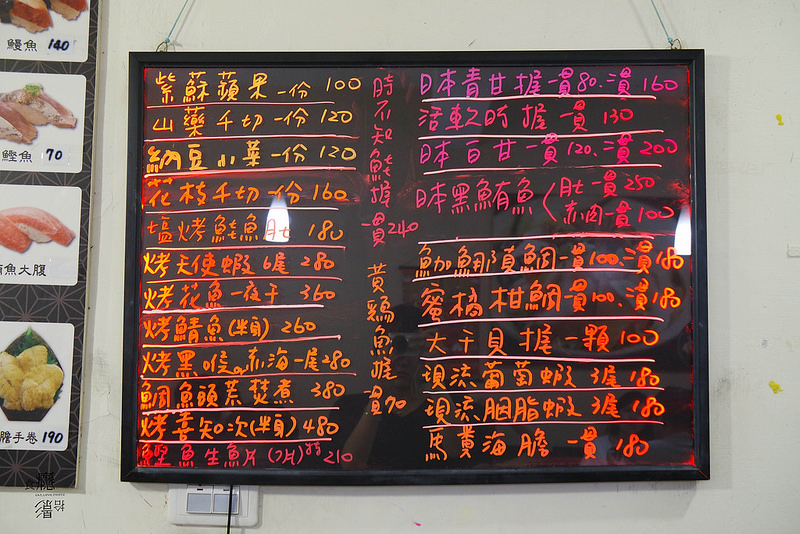 鰻魚 140
鰹魚 70
魚大腹
膽手卷 190
紫蘇蘋果一份 100
山藥千切一份 120
納豆小葉一份 120
花枝千切一份 160
塩烤鮭魚肚 180
烤天使蝦 6尾 280
烤花魚一夜干 360
烤鯖魚(半身) 260
烤黑喉 赤海一尾280
鯛魚頭蕪焚煮 380
烤喜知次(半身) 480
鰹魚生魚片(7片)特210
時不知鮭握一貫240
黃鷄魚握一貫70
日本青甘握一貫80、二貫160
活軟絲握一貫 130
日本白甘一貫120、二貫200
日本黑鮪魚(肚一貫250
赤肉一貫100
魚加魚那真鯛一貫100、二貫180
蜜橘柑鯛一貫100、二貫180
大干貝握一顆100
現流葡萄蝦 3尾 180
現流胭脂蝦 3尾 180
馬糞海膽一貫 180
拾影